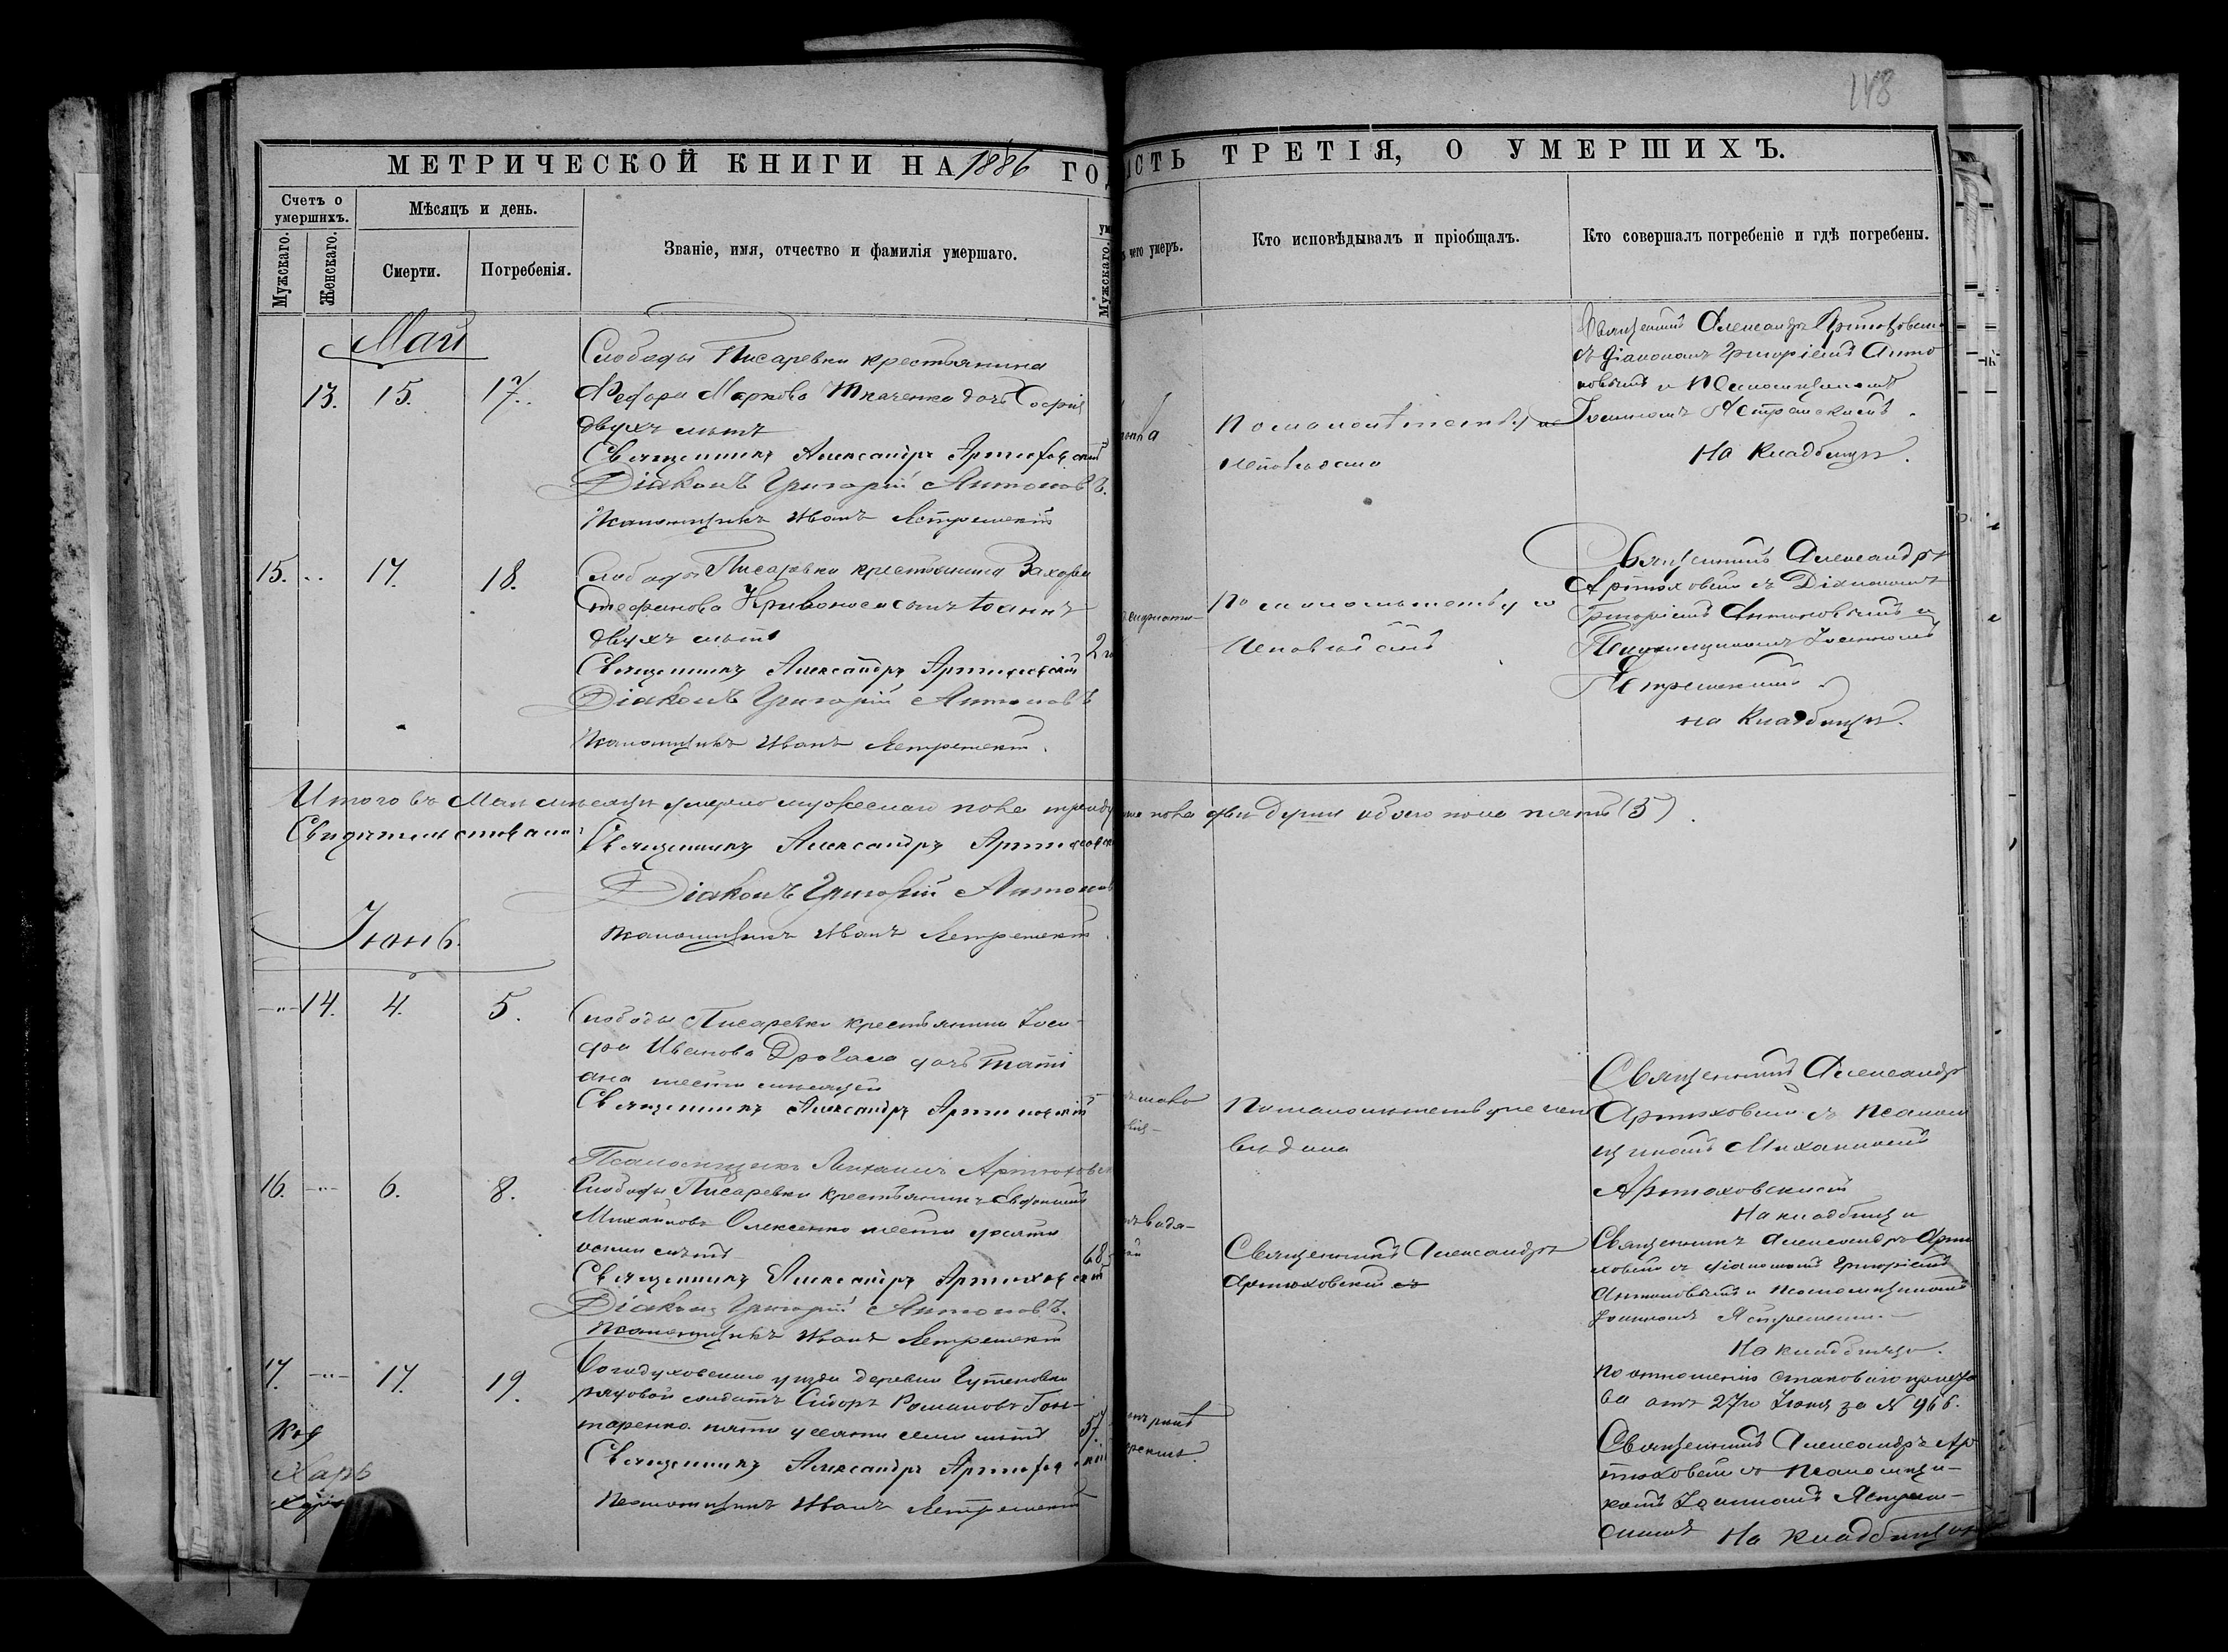 118
МЕТРИЧЕСКОЙ КНИГИ НА 1886 ГО
СТЬ ТРЕТІЯ, О УМЕРШИХЪ.
Счетъ о умершихъ.
Мужскаго.
Женскаго.
Мѣсяцъ и день.
Смерти.
Погребенія.
Званіе, имя, отчество и фамилія умершаго.
Мужскаго.
чего умеръ.
Кто исповѣдывалъ и пріобщалъ.
Кто совершалъ погребеніе и гдѣ погребены.
Май
13. 15. 17.
Слободы Писаревки крестьянина
Федора Маркова Ткаченка дочь Софія
двухъ лѣтъ
Священникъ Александръ Артюховскій
Діаконъ Григорій Антоновъ.
Псаломщикъ Иванъ Ястремскій
По малолѣтству не
исповѣдана
Священникъ Александръ Артюховскі
съ діакономъ Григоріемъ Анто
новымъ и Псаломщикомъ
Іоанномъ Ястремскимъ.
На кладбищѣ.
15. 17. 18.
Слободы Писаревки крестьянина Захарія
Стефанова Кривоноса сынъ Іоаннъ
двухъ лѣтъ
2
Священникъ Александръ Артюховскій
Діаконъ Григорій Антоновъ
Псаломщикъ Иванъ Ястремскій.
По малолѣтству не
исповѣданъ
Священникъ Александръ
Артюховскій съ Діакономъ
Григоріемъ Антоновымъ и
Псаломщикомъ Іоанномъ
Ястремскимъ
на кладбищѣ.
Итого въ Маѣ мѣсяцѣ умерло мужескаго пола три
пола двѣ души обоего пола пять (5).
Свидѣтельствовали:
Священникъ Александръ Артюховск
Діаконъ Григорій Антонов
Псаломщикъ Иванъ Ястремскій
Іюнь.
14. 4. 5.
Слободы Писаревки крестьянина Іоси-
фа Иванова дочь Таті
ана шести мѣсяцей
Священникъ Александръ Артюховскій
Псаломщикъ Михаилъ Артюховск
По малолѣтству не испо
вѣдана
Священникъ Александръ
Артюховскій съ Псалом
щикомъ Михаиломъ
Артюховскимъ
На кладбищѣ
16. 6. 8.
Слободы Писаревки крестьянинъ
Михайловъ Олексенко шести десяти
восьми лѣтъ
68
Священникъ Александръ Артюховскій
Діаконъ Григорій Антоновъ.
Псаломщикъ Иванъ Ястремскій
Священникъ Александръ
Артюховскій
Священникъ Александръ Артю
ховскій съ діакономъ Григоріемъ
Антоновымъ и Псаломщикомъ
Іоанномъ Ястремским
На кладбищѣ.
17. 17. 19.
Богодуховскаго уѣзда деревни
рядовой солдатъ Сидоръ Романовъ Гон-
таренко пяти десяти семи лѣтъ
57.
Священникъ Александръ Артюхов
Псаломщикъ Иванъ Ястремскій
По отношенію становаго приста
ва отъ 27го Іюня за N 966.
Священникъ Александръ Ар
тюховскій съ Псаломщи-
комъ Іоанномъ Ястрем-
скимъ На кладбищѣ